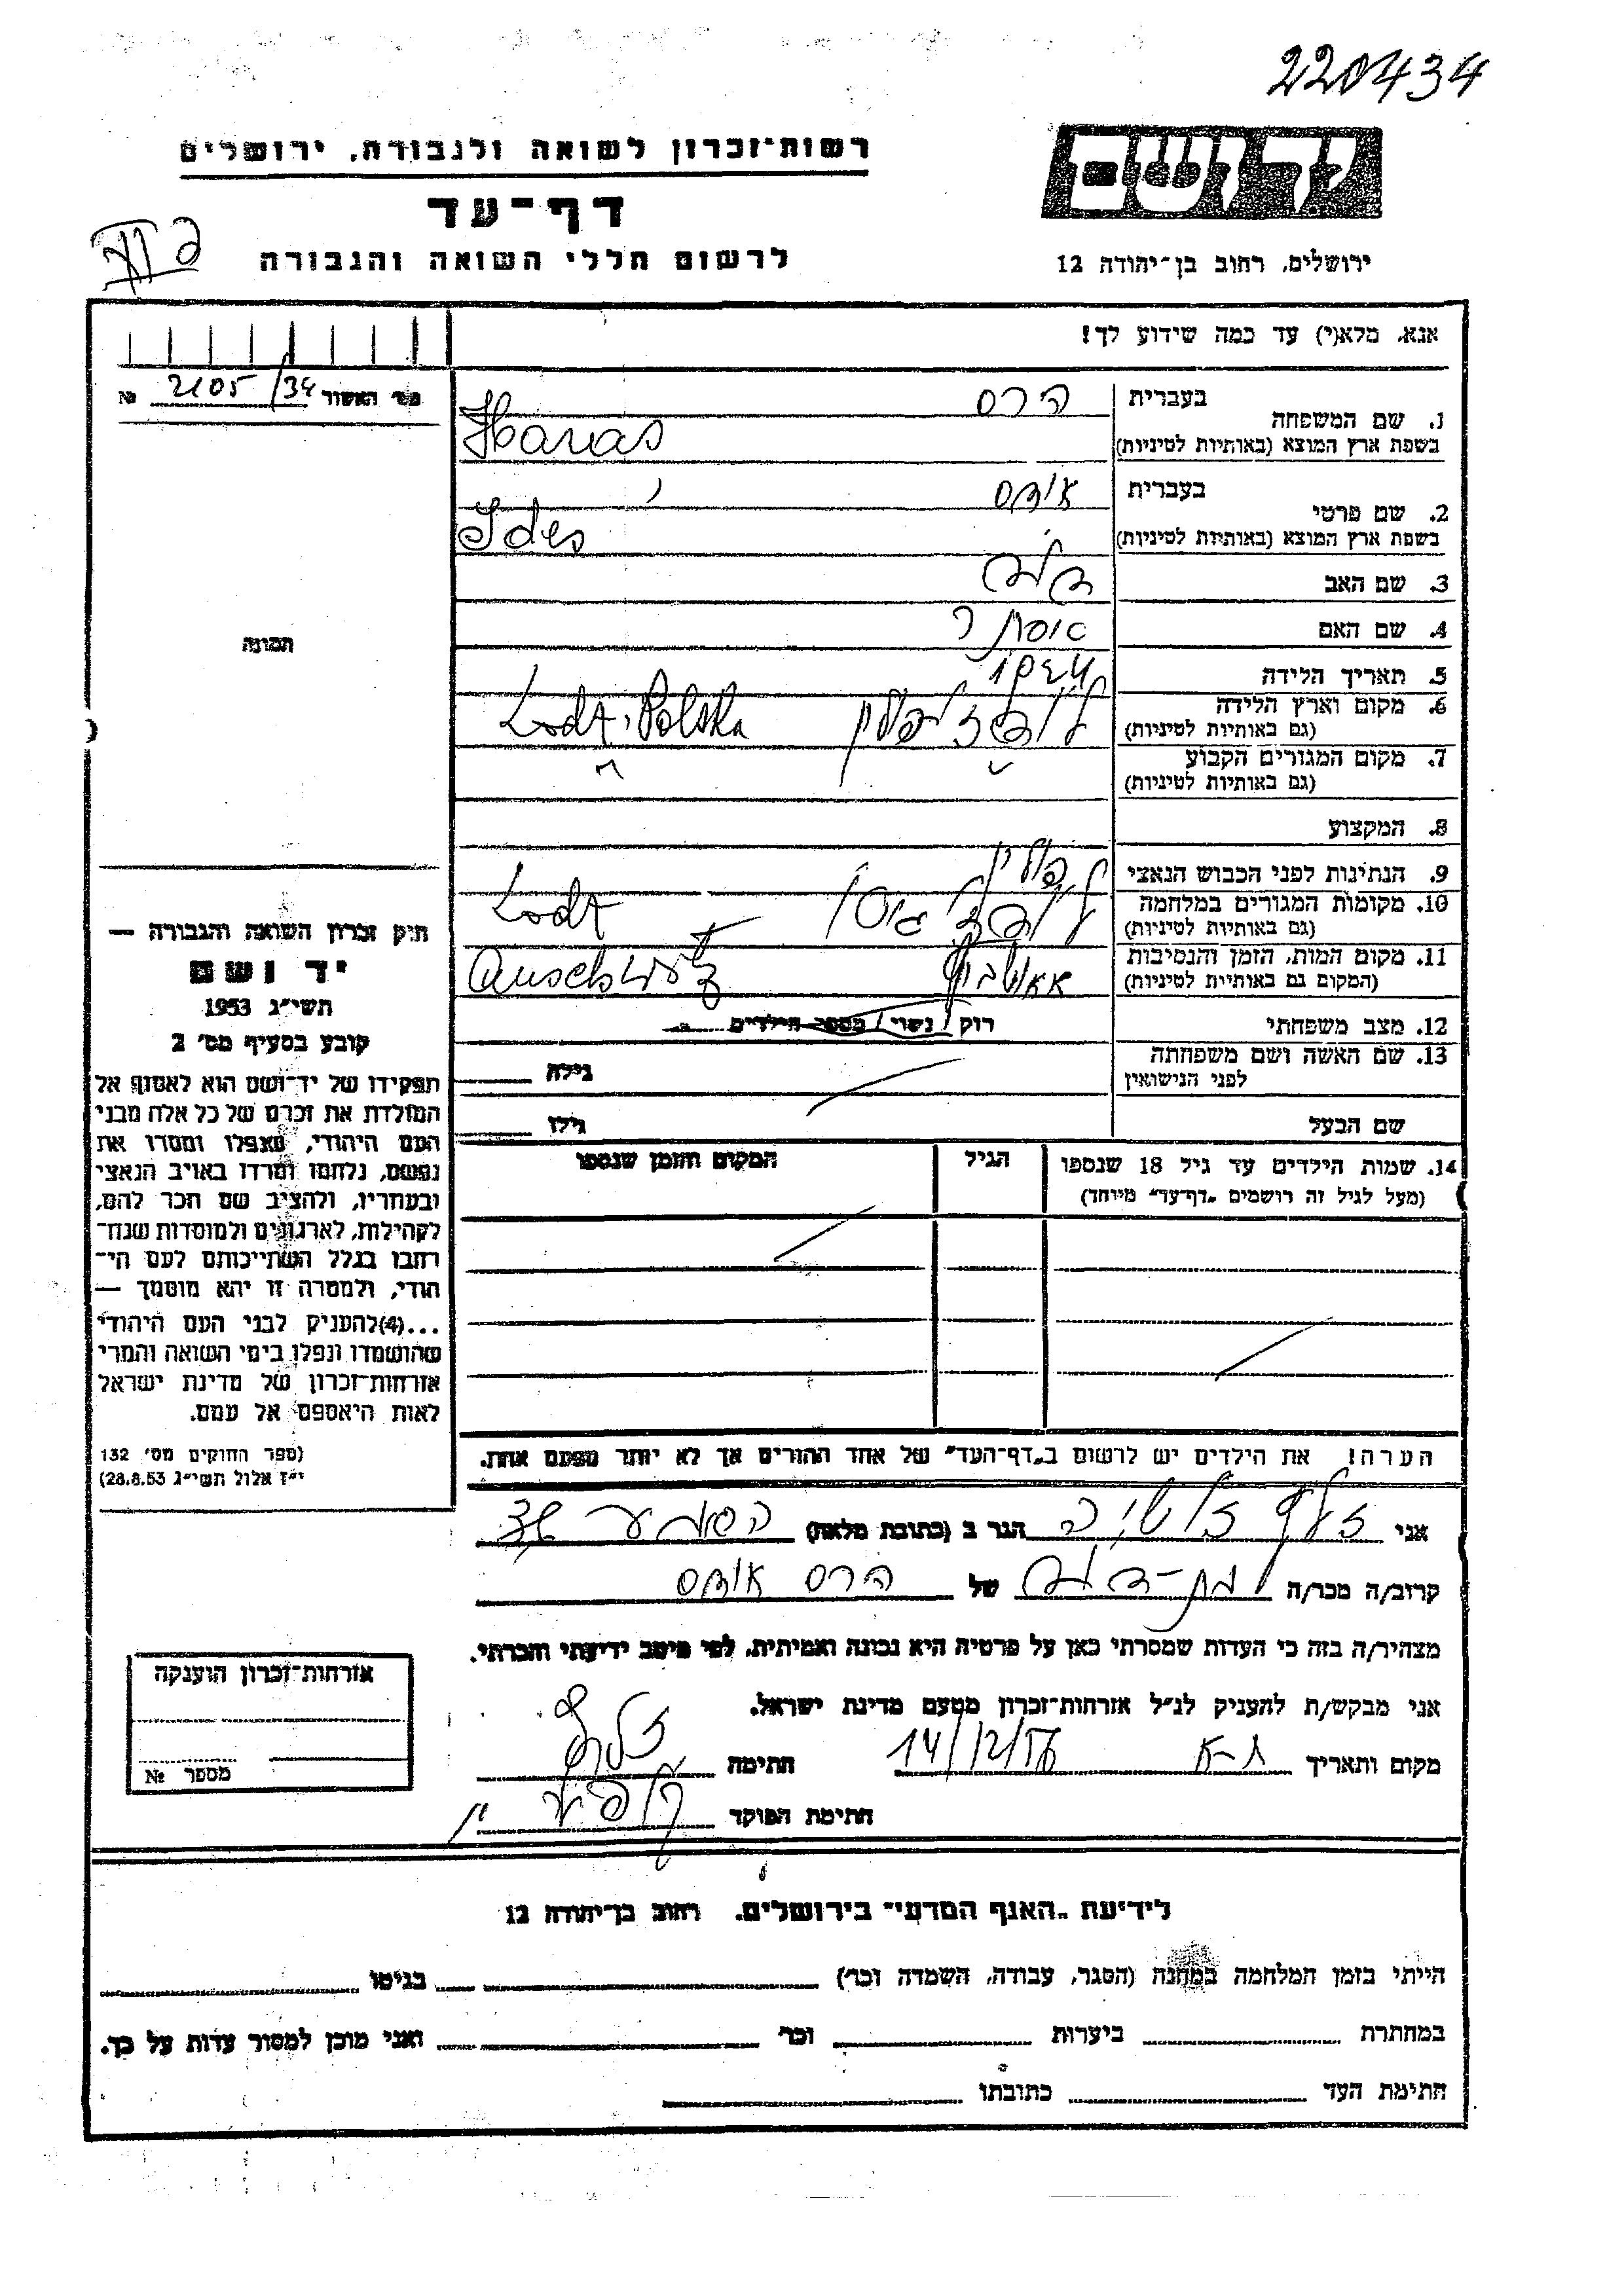 220434
רשות־זכרון לשואה ולגבורה, ירושלים
דף־עד
לרשום חללי השואה והגבורה
יד ושם
ירושלים, רחוב בן־יהודה 12
אנא, מלא(י) עד כמה שידוע לך!
מס׳ האשור 2105/34 №
1. שם המשפחה
בעברית הרס
בשפת ארץ המוצא (באותיות לטיניות) Haras
2. שם פרטי
בעברית אידס
בשפת ארץ המוצא (באותיות לטיניות) Ides
3. שם האב
4. שם האם
5. תאריך הלידה
6. מקום וארץ הלידה
(גם באותיות לטיניות) לודז פולין Lodz, Polska
7. מקום המגורים הקבוע
(גם באותיות לטיניות)
8. המקצוע
9. הנתינות לפני הכבוש הנאצי פולין
10. מקומות המגורים במלחמה
(גם באותיות לטיניות) לודז גיטו Lodz
11. מקום המות, הזמן והנסיבות
(המקום גם באותיות לטיניות) אאושביץ
12. מצב משפחתי רוק / נשוי / מספר הילדים
13. שם האשה ושם משפחתה
לפני הנישואין
גילה
שם הבעל
גילו
14. שמות הילדים עד גיל 18 שנספו
(מעל לגיל זה רושמים „דף־עד״ מיוחד)
הגיל
המקום והזמן שנספו
הערה! את הילדים יש לרשום ב„דף־העד״ של אחד ההורים אך לא יותר מפעם אחת.
תמונה
חוק זכרון השואה והגבורה —
יד ושם
תשי״ג 1953
קובע בסעיף מס׳ 2
תפקידו של יד־ושם הוא לאסוף אל
המולדת את זכרם של כל אלה מבני
העם היהודי, שנפלו ומסרו את
נפשם, נלחמו ומרדו באויב הנאצי
ובעוזריו, ולהציב שם וזכר להם,
לקהילות, לארגונים ולמוסדות שנח־
רבו בגלל השתייכותם לעם הי־
הודי, ולמטרה זו יהא מוסמך —
...(4)להעניק לבני העם היהודי
שהושמדו ונפלו בימי השואה והמרי
אזרחות־זכרון של מדינת ישראל
לאות היאספם אל עמם.
(ספר החוקים מס׳ 132
י״ז אלול תשי״ג 28.8.53)
אני הגר ב (כתובת מלאה)
קרוב/ה מכר/ה של הרס אידס
מצהיר/ה בזה כי העדות שמסרתי כאן על פרטיה היא נכונה ואמיתית, לפי מיטב ידיעתי והכרתי.
אני מבקש/ת להעניק לנ״ל אזרחות־זכרון מטעם מדינת ישראל.
מקום ותאריך ת-א 14/12/56 חתימה
חתימת הפוקד
אזרחות־זכרון הוענקה
מספר №
לידיעת „האגף המדעי״ בירושלים, רחוב בן־יהודה 12
הייתי בזמן המלחמה במחנה (הסגר, עבודה, השמדה וכו׳) בגיטו
במחתרת ביערות וכו׳ ואני מוכן למסור עדות על כך.
חתימת העד כתובתו